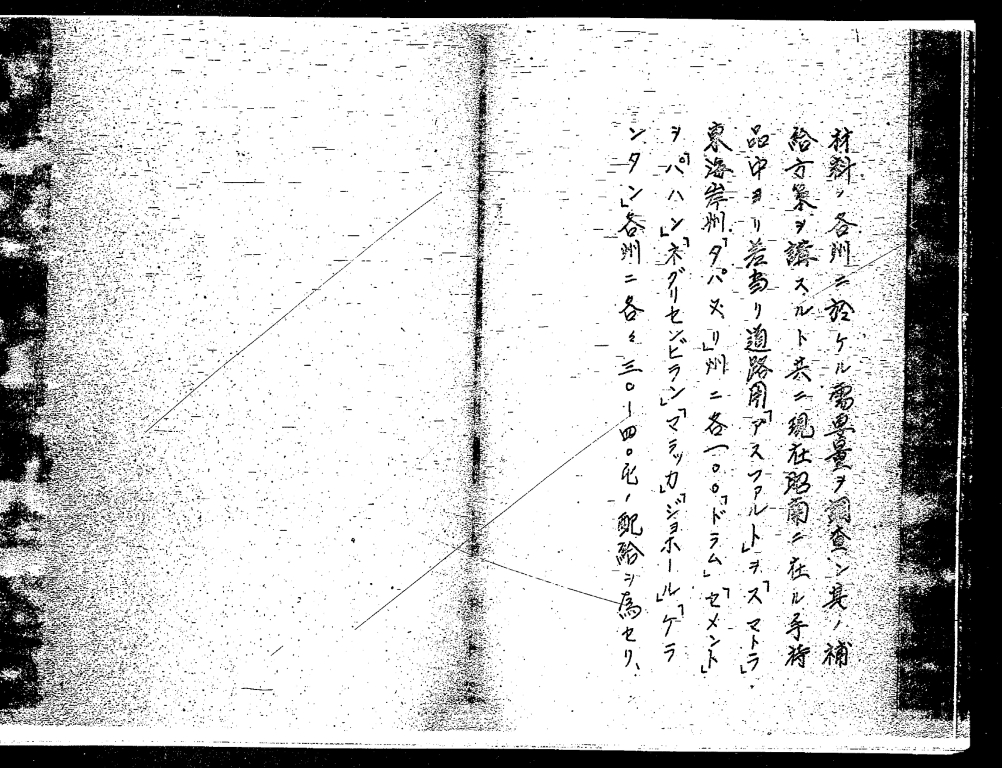 材料ノ各州ニ於ケル需要量ヲ調査シ其ノ補
給方策ヲ講スルト共ニ現在昭南ニ在ル手持
品中ヨリ差当リ道路用「アスファルト」ヲ「スマトラ」
東海岸州「タパヌリ」州ニ各一〇〇「ドラム」「セメント」
ヲ「パハン」「ネグリセンビラン」「マラッカ」「ジョホール」「ケラ
ンタン」各州ニ各々三〇-四〇瓲ノ配給ヲ為セリ、